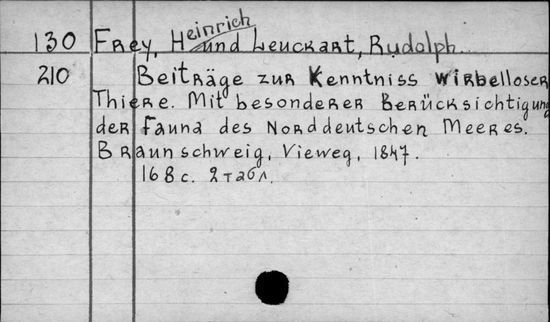 130 Frey, Heinrich und Leuckart, Rudolph.
210 Beiträge zur Kenntniss wirbelloser
Thiere. Mit besonderer Berücksichtigung
der Fauna des Norddeutschen Meeres.
Braunschweig, Vieweg, 1847.
168 c. 2 табл.